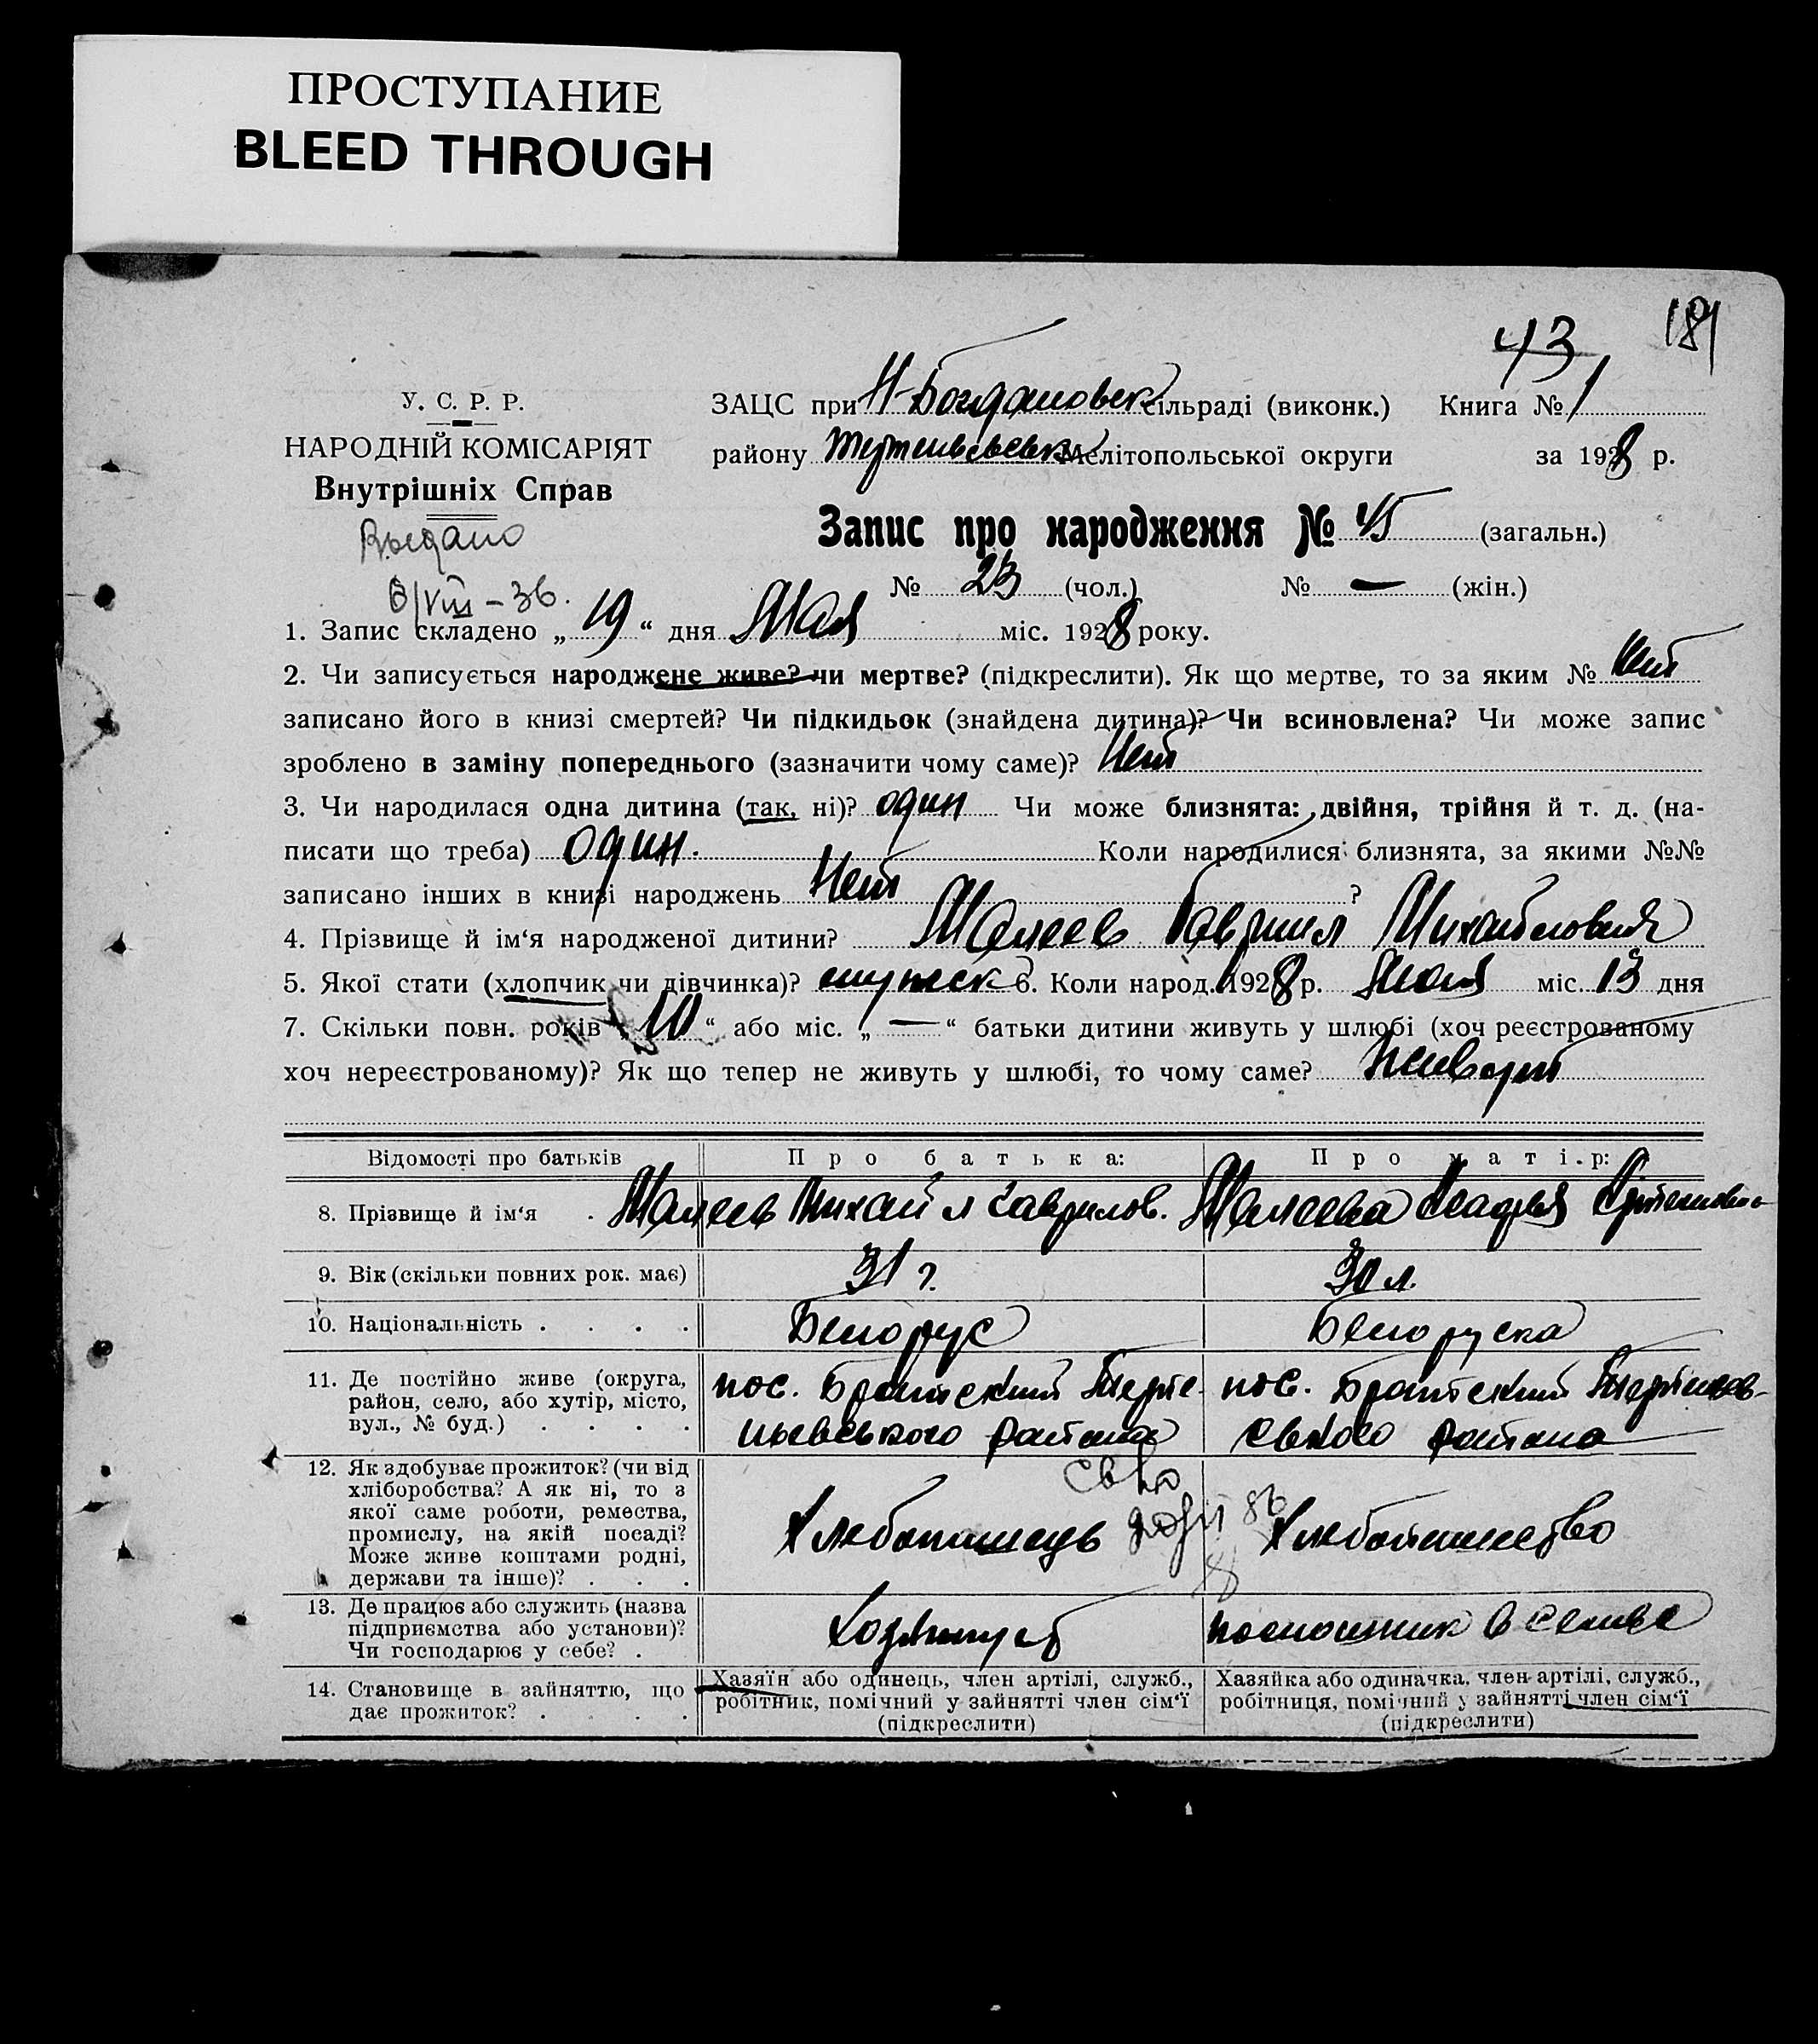 ПРОСТУПАНИЕ
BLEED THROUGH
43 181
У. С. Р. Р.
НАРОДНІЙ КОМІСАРІЯТ
Внутрішніх Справ
Выдано
6/VIII – 36.
ЗАЦС при Н-Богдановск сільраді (виконк.) Книга № 1
району Мелітопольської округи за 1928 р.
Запис про народження № 45 (загальн.)
№ 23 (чол.) № — (жін.)
1. Запис складено „ 19 “ дня Мая міс. 1928 року.
2. Чи записується народжене живе? чи мертве? (підкреслити). Як що мертве, то за яким № Нет
записано його в книзі смертей? Чи підкидьок (знайдена дитина)? Чи всиновлена? Чи може запис
зроблено в заміну попереднього (зазначити чому саме)? Нет
3. Чи народилася одна дитина (так, ні)? один Чи може близнята: двійня, трійня й т. д. (на-
писати що треба) один. Коли народилися близнята, за якими №№
записано інших в книзі народжень Нет ?
4. Прізвище й ім‘я народженої дитини? Малеев Гаврил Михайлович
5. Якої стати (хлопчик чи дівчинка)? мужск 6. Коли народ. 1928 р. Мая міс. 13 дня
7. Скільки повн. років „ 10 “ або міс. „ — “ батьки дитини живуть у шлюбі (хоч реєстрованому
хоч нереєстрованому)? Як що тепер не живуть у шлюбі, то чому саме? Живут
Відомості про батьків Про батька: Про матір:
8. Прізвище й ім‘я . Малеев Михаил Гаврилов. Малеева Агафья
9. Вік (скільки повних рок. має) 31 г. 30 л.
10. Національність . . . . Белорус Белоруска
11. Де постійно живе (округа,
район, село, або хутір, місто,
вул., № буд.) . . . .
пос. Братский
района
пос. Братский
ського района
12. Як здобуває прожиток? (чи від
хліборобства? А як ні, то з
якої саме роботи, ремества,
промислу, на якій посаді?
Може живе коштами родні,
держави та інше)? . . .
Хлебопашець
Хлебопашество
13. Де працює або служить (назва
підприємства або установи)?
Чи господарює у себе? .
Хозяинует
помошник в семье
14. Становище в зайняттю, що
дає прожиток? . . . .
Хазяїн або одинець, член артілі, служб.,
робітник, помічний у зайнятті член сім‘ї
(підкреслити)
Хазяйка або одиначка, член артілі, служб.,
робітниця, помічний у зайнятті член сім‘ї
(підкреслити)